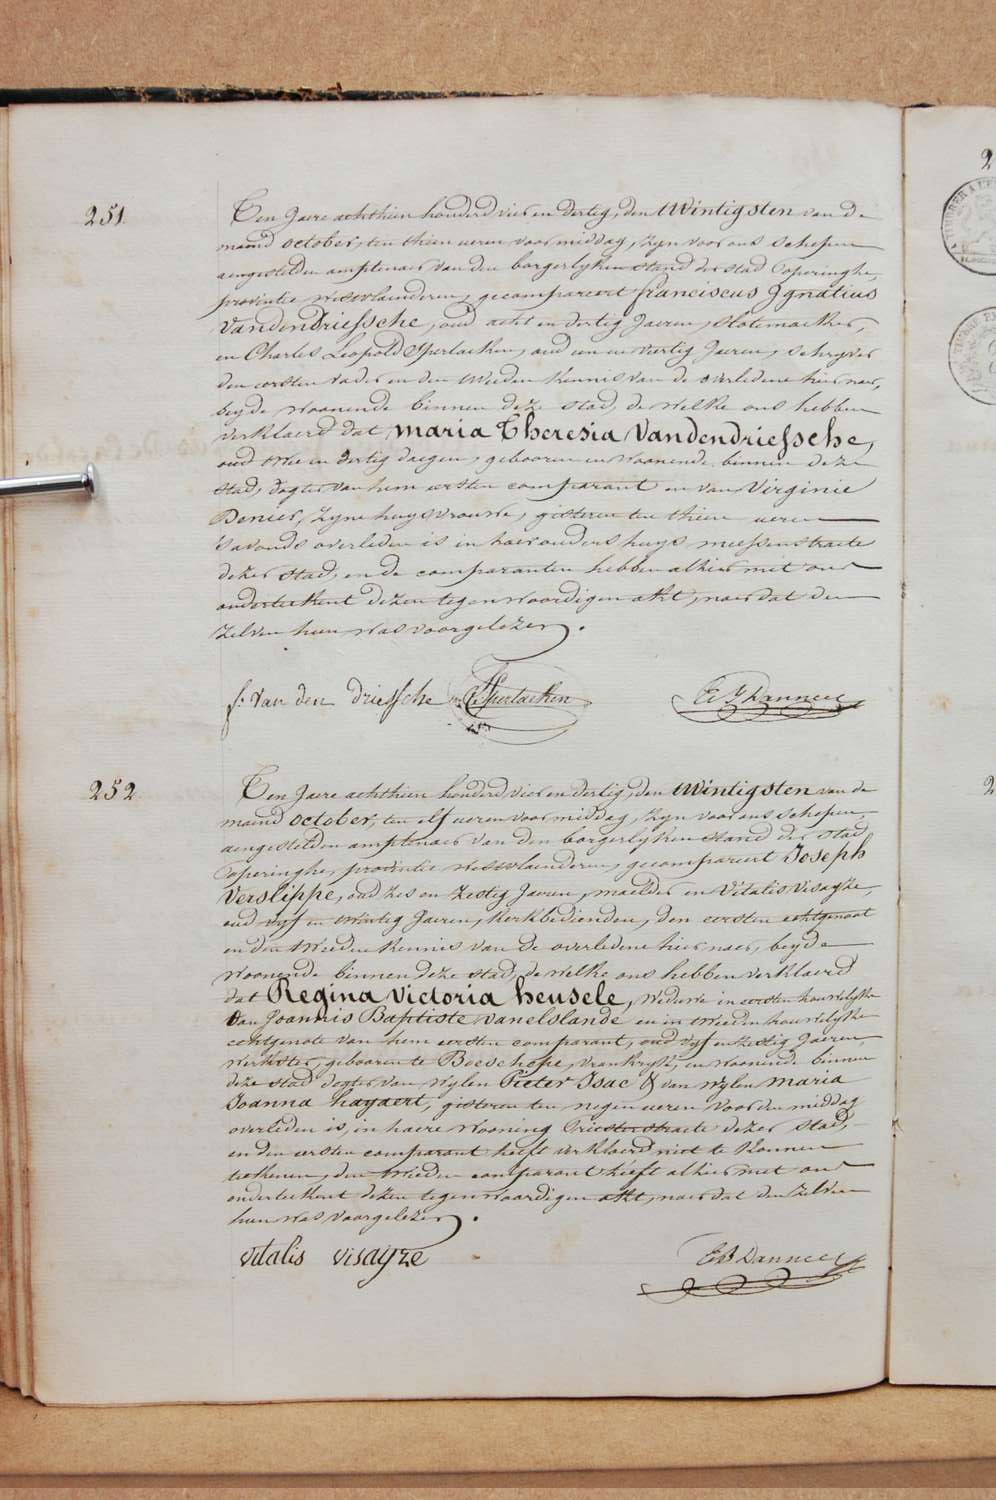 251.
Ten Jaere achthien honderd vier en dertig, den twintigsten van de
maend october, ten thien ueren voormiddag, zyn voor ons schepen
aengestelden amptenaer van den borgerlyken stand der stad Poperinghe,
provintie westvlaenderen, gecompareert franciscus Ignatius
vandendriessche, oud acht en dertig Jaeren, slotemaeker,
en Charles Leopold Sperlaeken, oud een en veertig Jaeren, schryver
den eersten vader en den tweeden kennis van de overledene hier naer,
beyde woonende binnen deze stad, de welke ons hebben
verklaerd dat, maria Theresia Vandendriessche,
oud twee en dertig daegen, gebooren en woonende binnen deze
stad, dogter van hem eersten comparant en van Virginie
Denier, zyne huysvrouwe, gisteren ten thien ueren
's avonds overleden is in haer ouders huys meessenstraete
dezer stad, en de comparanten hebben alhier met ons
onderteekent dezen tegenwoordigen akt, naer dat den
zelven hun was voorgelezen.
f. van den driessche Sperlaeken
252.
Ten Jaere achthien honderd vier en dertig, den twintigsten van de
maend october, ten elf ueren voormiddag, zyn voor ons schepen,
aengestelden amptenaer van den borgerlyken stand der stad
Poperinghe, provintie westvlaenderen, gecompareert Joseph
Verslippe, oud zes en zestig Jaeren, maelder en Vitalis Visayze,
oud vyf en twintig Jaeren, kerkbedienden, den eersten echtgenoot
en den tweeden kennis van de overledene hier naer, beyde
woonende binnen deze stad, de welke ons hebben verklaerd
dat Regina victoria heusele, weduwe in eersten houwelyke
van Joannis Baptiste vanelslande en in tweeden houwelyke
echtgenote van hem eersten comparant, oud vyf en zestig Jaeren,
werkster, gebooren te Boeschepe, vrankryk, en woonende binnen
deze stad dogter van wylen Pieter Isac & van wylen maria
Joanna hayaert, gisteren ten negen ueren voor den middag
overleden is, in haere wooning Priesterstraete dezer stad,
en den eersten comparant heeft verklaerd niet te konnen
teekenen, den tweeden comparant heeft alhier met ons
onderteekent dezen tegenwoordigen akt, naer dat den zelven
hun was voorgelezen.
vitalis visayze